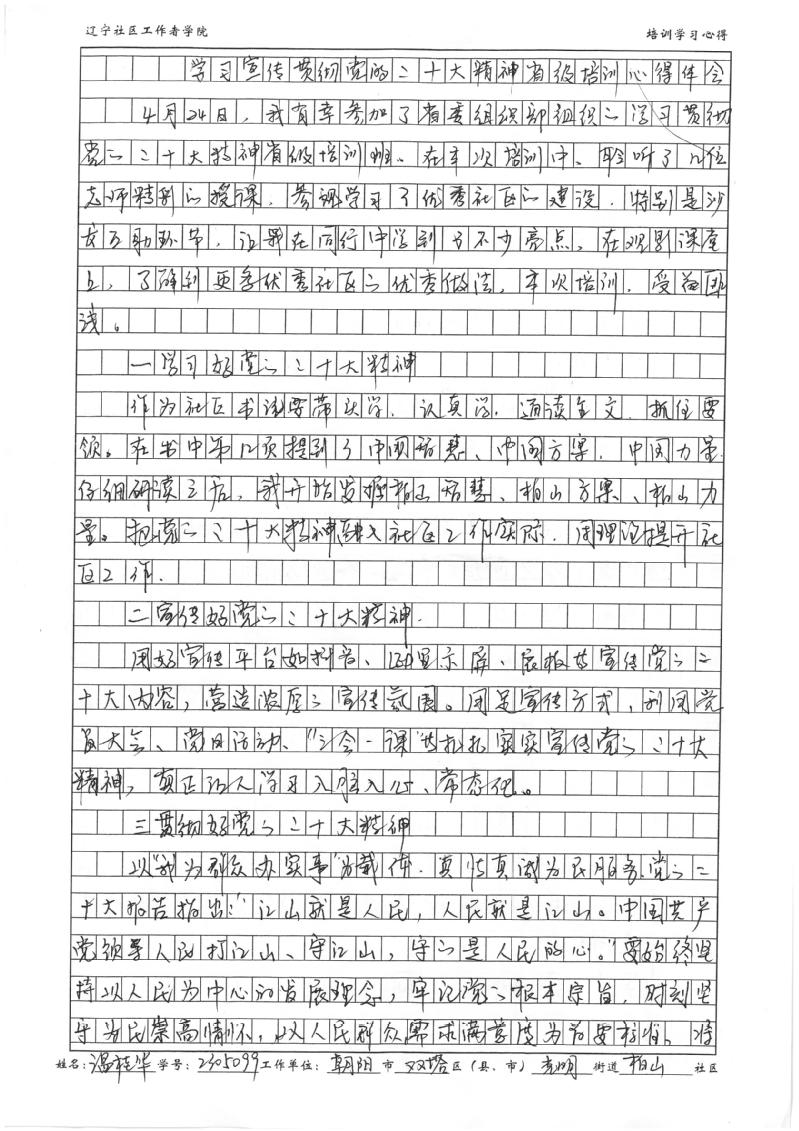 辽宁社区工作者学院 培训学习心得
学习宣传贯彻党的二十大精神省级培训心得体会
4月24日，我有幸参加了省委组织部组织的学习贯彻
党的二十大精神省级培训班。在本次培训中，聆听了几位
老师精彩的授课，参观学习了优秀社区的建设，特别是沙
龙互动环节，让我在同行中学到了不少亮点，在观影课堂
上，了解到更多优秀社区的优秀做法，本次培训，受益匪
浅。
一学习好党的二十大精神
作为社区书记要带头学，认真学，通读全文，抓住要
领。在书中第12页提到了中国智慧、中国方案，中国力量
仔细研读之后，我开始发掘柏山智慧、柏山方案、柏山力
量。把党的二十大精神融入社区工作实际，用理论提升社
区工作.
二宣传好党的二十大精神.
用好宣传平台如抖音、LED显示屏、展板等宣传党的二
十大内容，营造浓厚的宣传氛围。用足宣传方式，利用党
员大会、党日活动、"三会一课"等扎扎实实宣传党的二十大
精神，真正让人学习入脑入心、常态化。
三贯彻好党的二十大精神
以"我为群众办实事"为载体，真情真诚为民服务党的二
十大报告指出："江山就是人民，人民就是江山。中国共产
党领导人民打江山、守江山，守的是人民的心。"要始终坚
持以人民为中心的发展理念，牢记党的根本宗旨，时刻坚
守为民崇高情怀，以人民群众需求满意度为首要标准，将
姓名：温桂华 学号：2305099 工作单位：朝阳 市 双塔 区（县、市） 光明 街道 柏山 社区